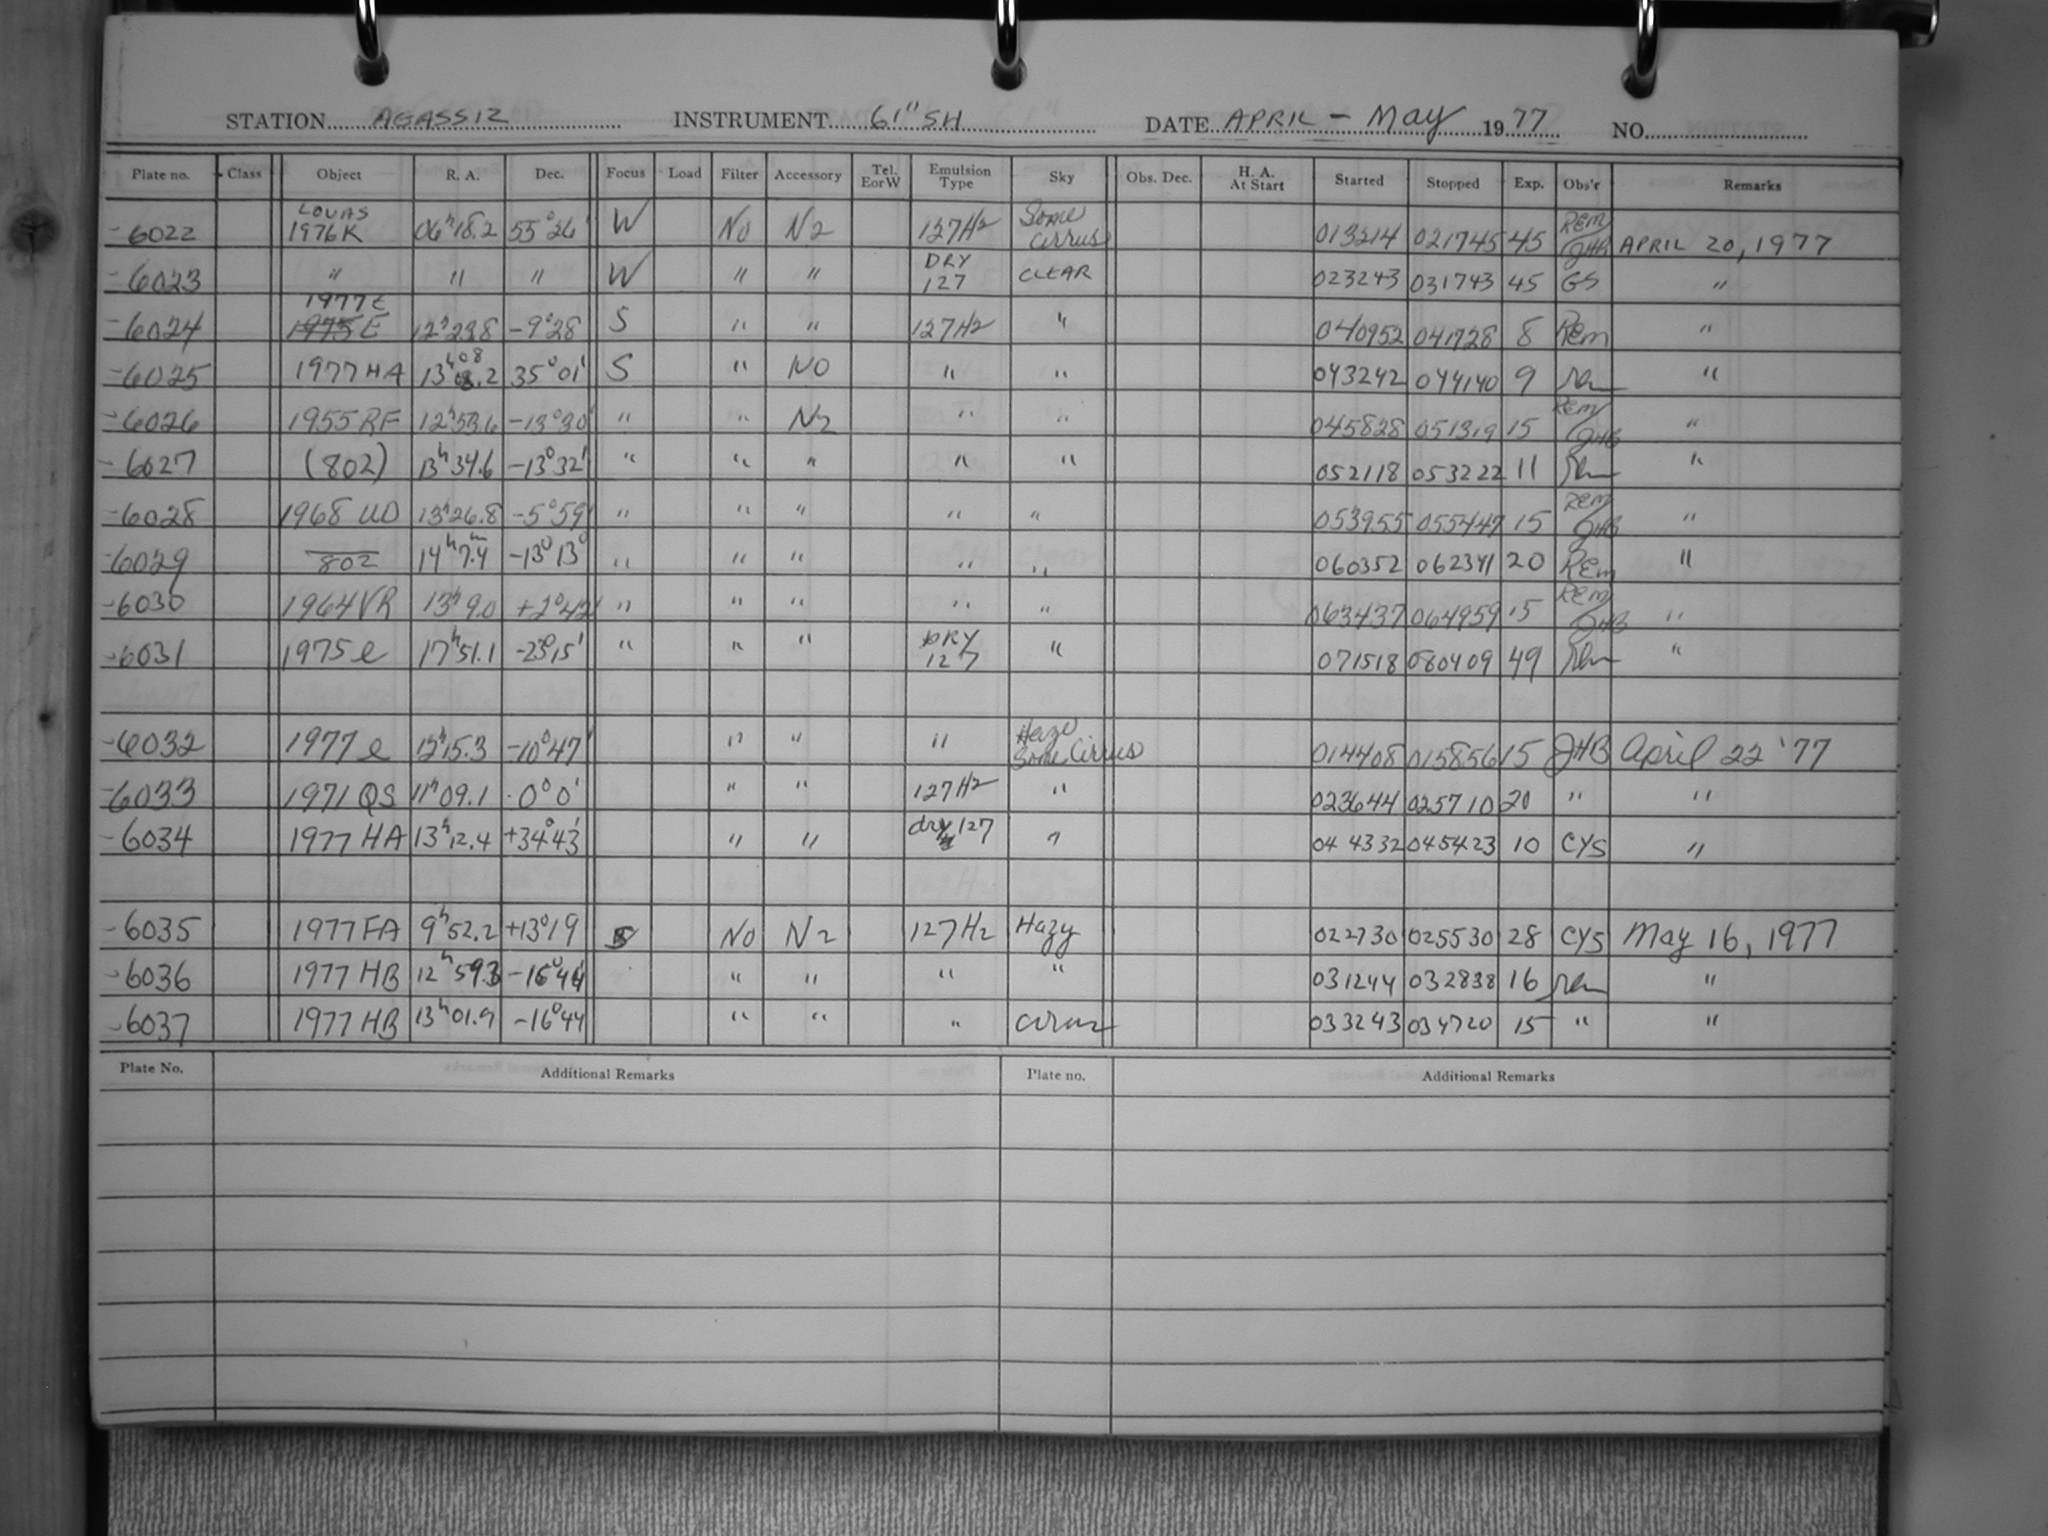 STATION AGASSIZ INSTRUMENT 61" SH DATE APRIL - May 1977 NO.
Plate no. Class Object R. A. Dec. Focus Load Filter Accessory Tel. E or W Emulsion Type Sky Obs. Dec. H. A. At Start Started Stopped Exp. Obs'r Remarks
-6022 LOVAS 1976K 06h18.2 55°26' W No N2 127H2 Some cirrus 013214 021745 45 REM JHB APRIL 20, 1977
-6023 " " " W " " DRY 127 CLEAR 023243 031743 45 GS "
-6024 1977E 1975E 12h23.8 -9°28 S " " 127H2 " 040952 041728 8 Rem "
-6025 1977HA 13h08.2 35°01' S " NO " " 043242 044140 9 rem "
-6026 1955RF 12h53.6 -13°30' " " N2 " " 045828 051319 15 REM JHB "
-6027 (802) 13h34.6 -13°32' " " " " " 052118 053222 11 rem "
-6028 1968 UD 13h26.8 -5°59' " " " " " 053955 055447 15 REM JHB "
-6029 802 14h7.4m -13°13° " " " " " 060352 062341 20 REm "
-6030 1964VR 13h9.0 +2°42' " " " " " 063437 064959 15 REM JHB "
-6031 1975e 17h51.1 -23°15' " " " DRY 127 " 071518 080409 49 rem "
-6032 1977e 12h15.3 -10°47' " " " Haze Some Cirrus 014408 015856 15 JHB April 22 '77
-6033 1971QS 11h09.1 0°0' " " 127H2 " 023644 025710 20 " "
-6034 1977 HA 13h12.4 +34°43' " " dry 127 " 044332 045423 10 CYS "
-6035 1977FA 9h52.2 +13°19 S No N2 127H2 Hazy 022730 025530 28 CYS May 16, 1977
-6036 1977 HB 12h59.3 -16°44' " " " " 031244 032838 16 rem "
-6037 1977 HB 13h01.9 -16°44 " " " cirrus 033243 034720 15 " "
Plate No. Additional Remarks Plate no. Additional Remarks